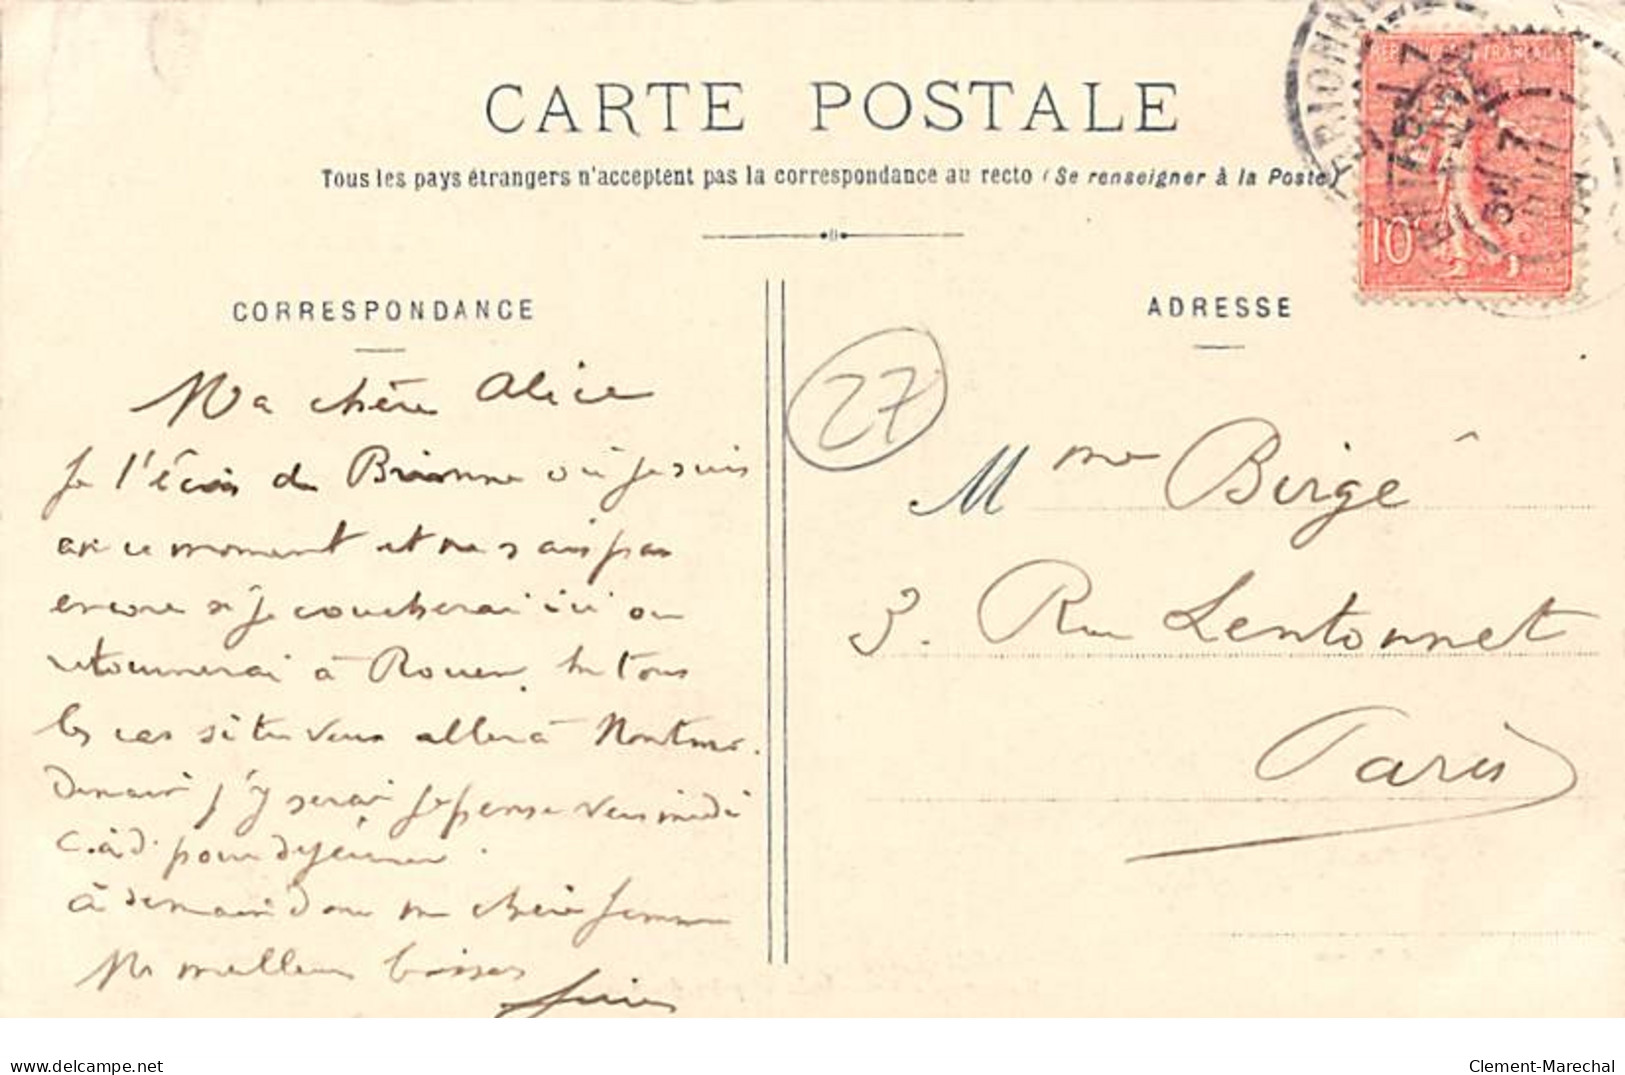 CARTE POSTALE
Tous les pays étrangers n'acceptent pas la correspondance au recto (Se renseigner à la Poste)
CORRESPONDANCE
Ma chère Alice
Je t'écris de Brionne où je suis
en ce moment et ne sais pas
encore si je coucherai ici ou
retournerai à Rouen. En tous
les cas si tu veux aller à
Demain j'y serai je pense vers midi
c.à.d. pour déjeuner.
à demain donc ma chère femme
Mes meilleurs baisers
ADRESSE
27
Mme Birgé
3. Rue Lentonnet
Paris
BRIONNE
REPUBLIQUE FRANCAISE
10c
delcampe.net
Clement-Marechal